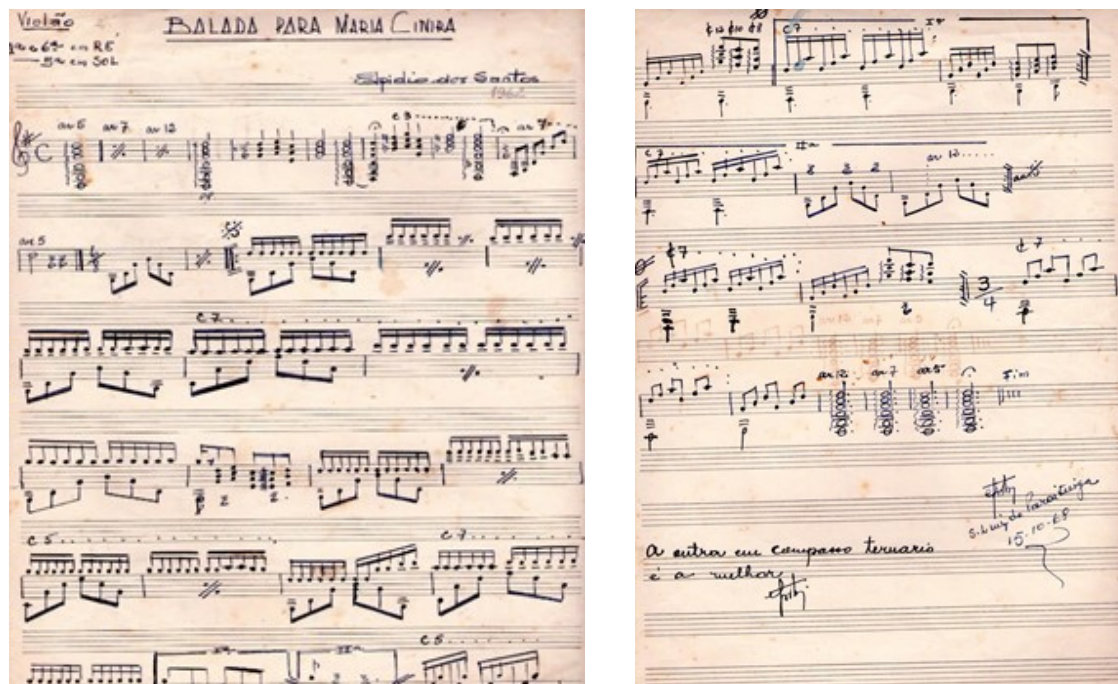 Violão
BALADA PARA MARIA CINIRA
6ª em RÉ
5ª em SOL
Elpidio dos Santos
1962
C 3
ar 5 ar 7 ar 12
ar 7
ar 5
C 7
C 5
C 7
Iª
IIª
C 5
¢12 ¢10 ¢8
C 7
Iª
C 7
IIª
3 3 2
ar 12
¢ 7
¢ 7
3
4
ar 12 ar 7 ar 5
Fim
S. Luiz do Paraitinga
15-10-68
A outra em compasso ternario
é a melhor